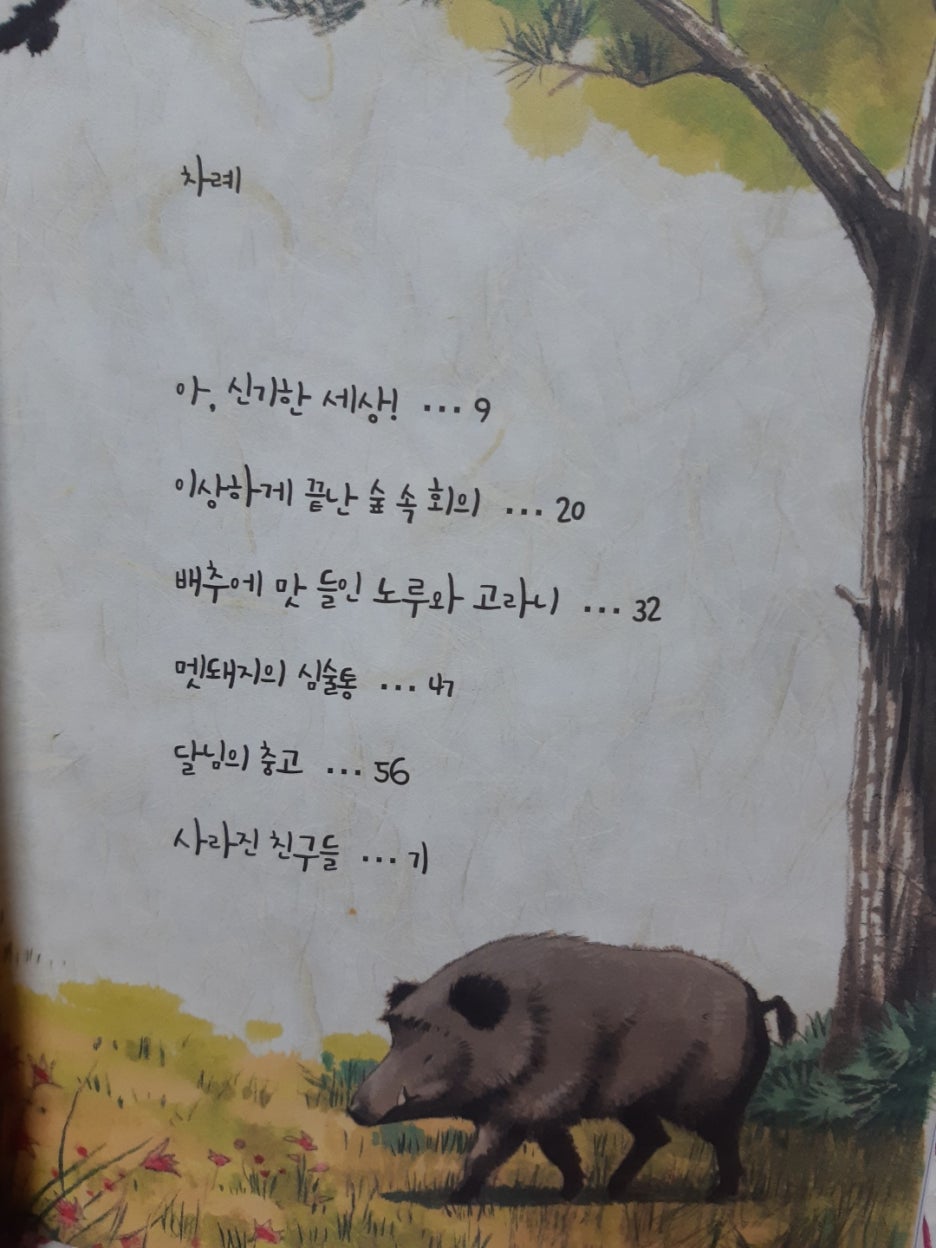 차례
아, 신기한 세상! ... 9
이상하게 끝난 숲 속 회의 ... 20
배추에 맛 들인 노루와 고라니 ... 32
멧돼지의 심술통 ... 47
달님의 충고 ... 56
사라진 친구들 ... 71